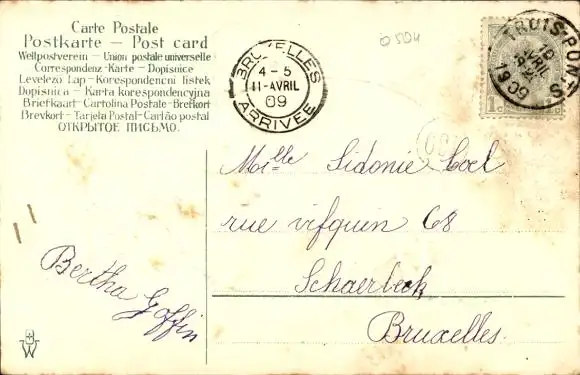 Carte Postale
Postkarte — Post card
Weltpostverein — Union postale universelle
Correspondenz-Karte — Dopisnice
Levelező Lap — Korespondencni listek
Dopisnica — Karta korespondencyjna
Briefkaart — Cartolina Postale — Brefkort
Brevkort — Tarjeta Postal — Cartão postal
ОТКРЫТОЕ ПИСЬМО.
BRUXELLES
4-5
11-AVRIL
09
ARRIVÉE
TROIS-PONTS
10
AVRIL
1909
1c
Melle Sidonie Coel
rue vifquin 68
Schaerbeck
Bruxelles.
Bertha Goffin
W